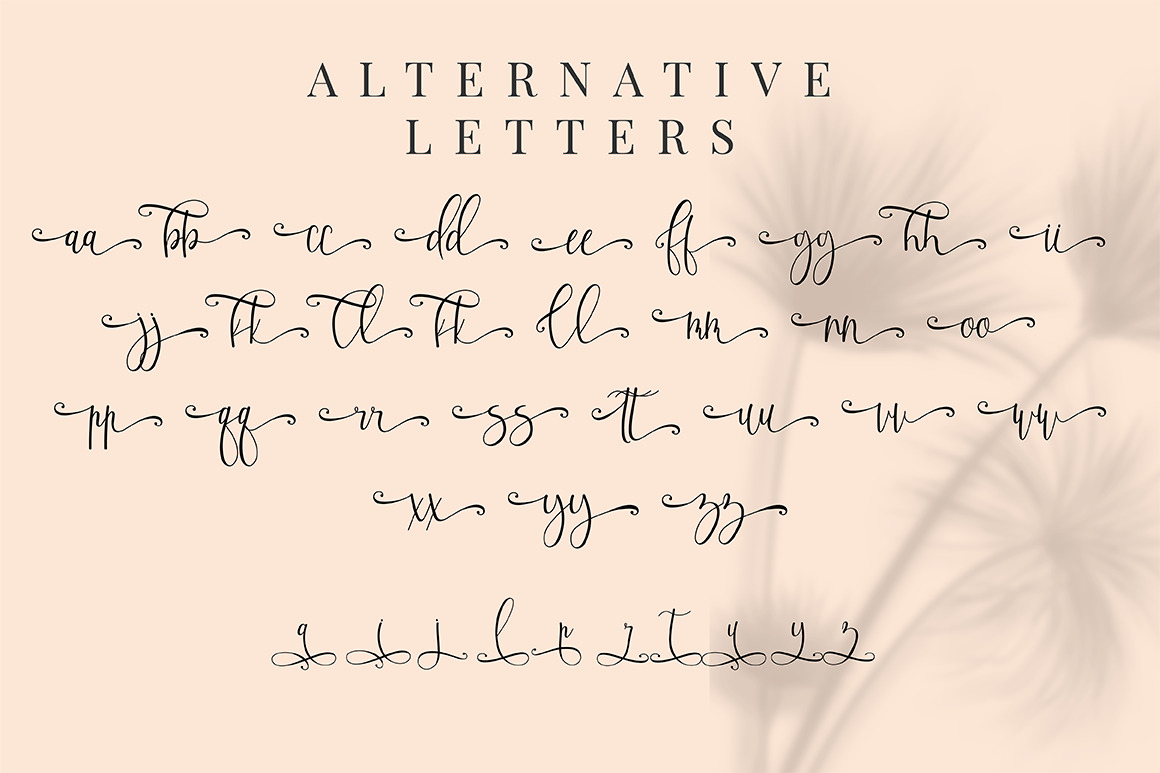 ALTERNATIVE
LETTERS
aa bb cc dd ee ff gg hh ii
jj kk ll kk ll mm nn oo
pp qq rr ss tt uu vv ww
xx yy zz
g i j l p r t y y z